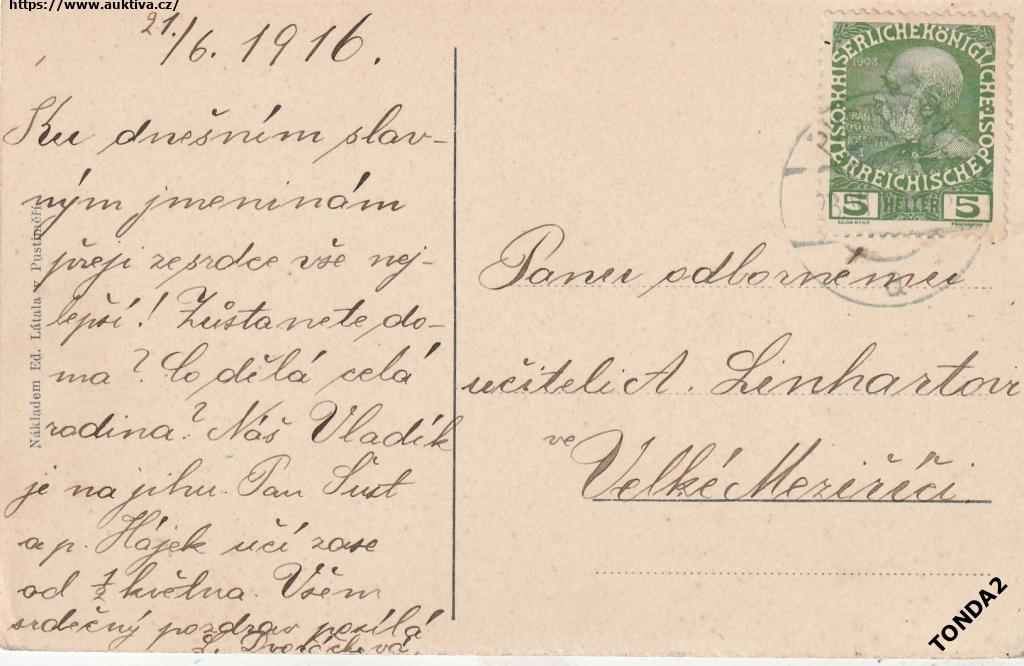 https://www.auktiva.cz/
21./6. 1916.
Ku dnešním slav-
ným jmeninám
přeji ze srdce vše nej-
lepší! Zůstanete do-
ma? Co dělá celá
rodina? Náš Vladík
je na jihu. Pan Šust
a p. Hájek učí zase
od 1/2 května. Všem
srdečný pozdrav posílá
L. Dvořáčková.
Nákladem Ed. Látala v Pustiměři
KAISERLICHE KÖNIGLICHE
ÖSTERREICHISCHE POST
1908
5 HELLER 5
Panu odbornému
učiteli A. Linhartovi
ve
Velké Meziříčí
TONDA2